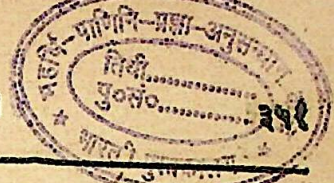 महर्षि-पाणिनि-प्रज्ञा-अनुसन्धान
तिथी..............
पु०सं०..............
३५१